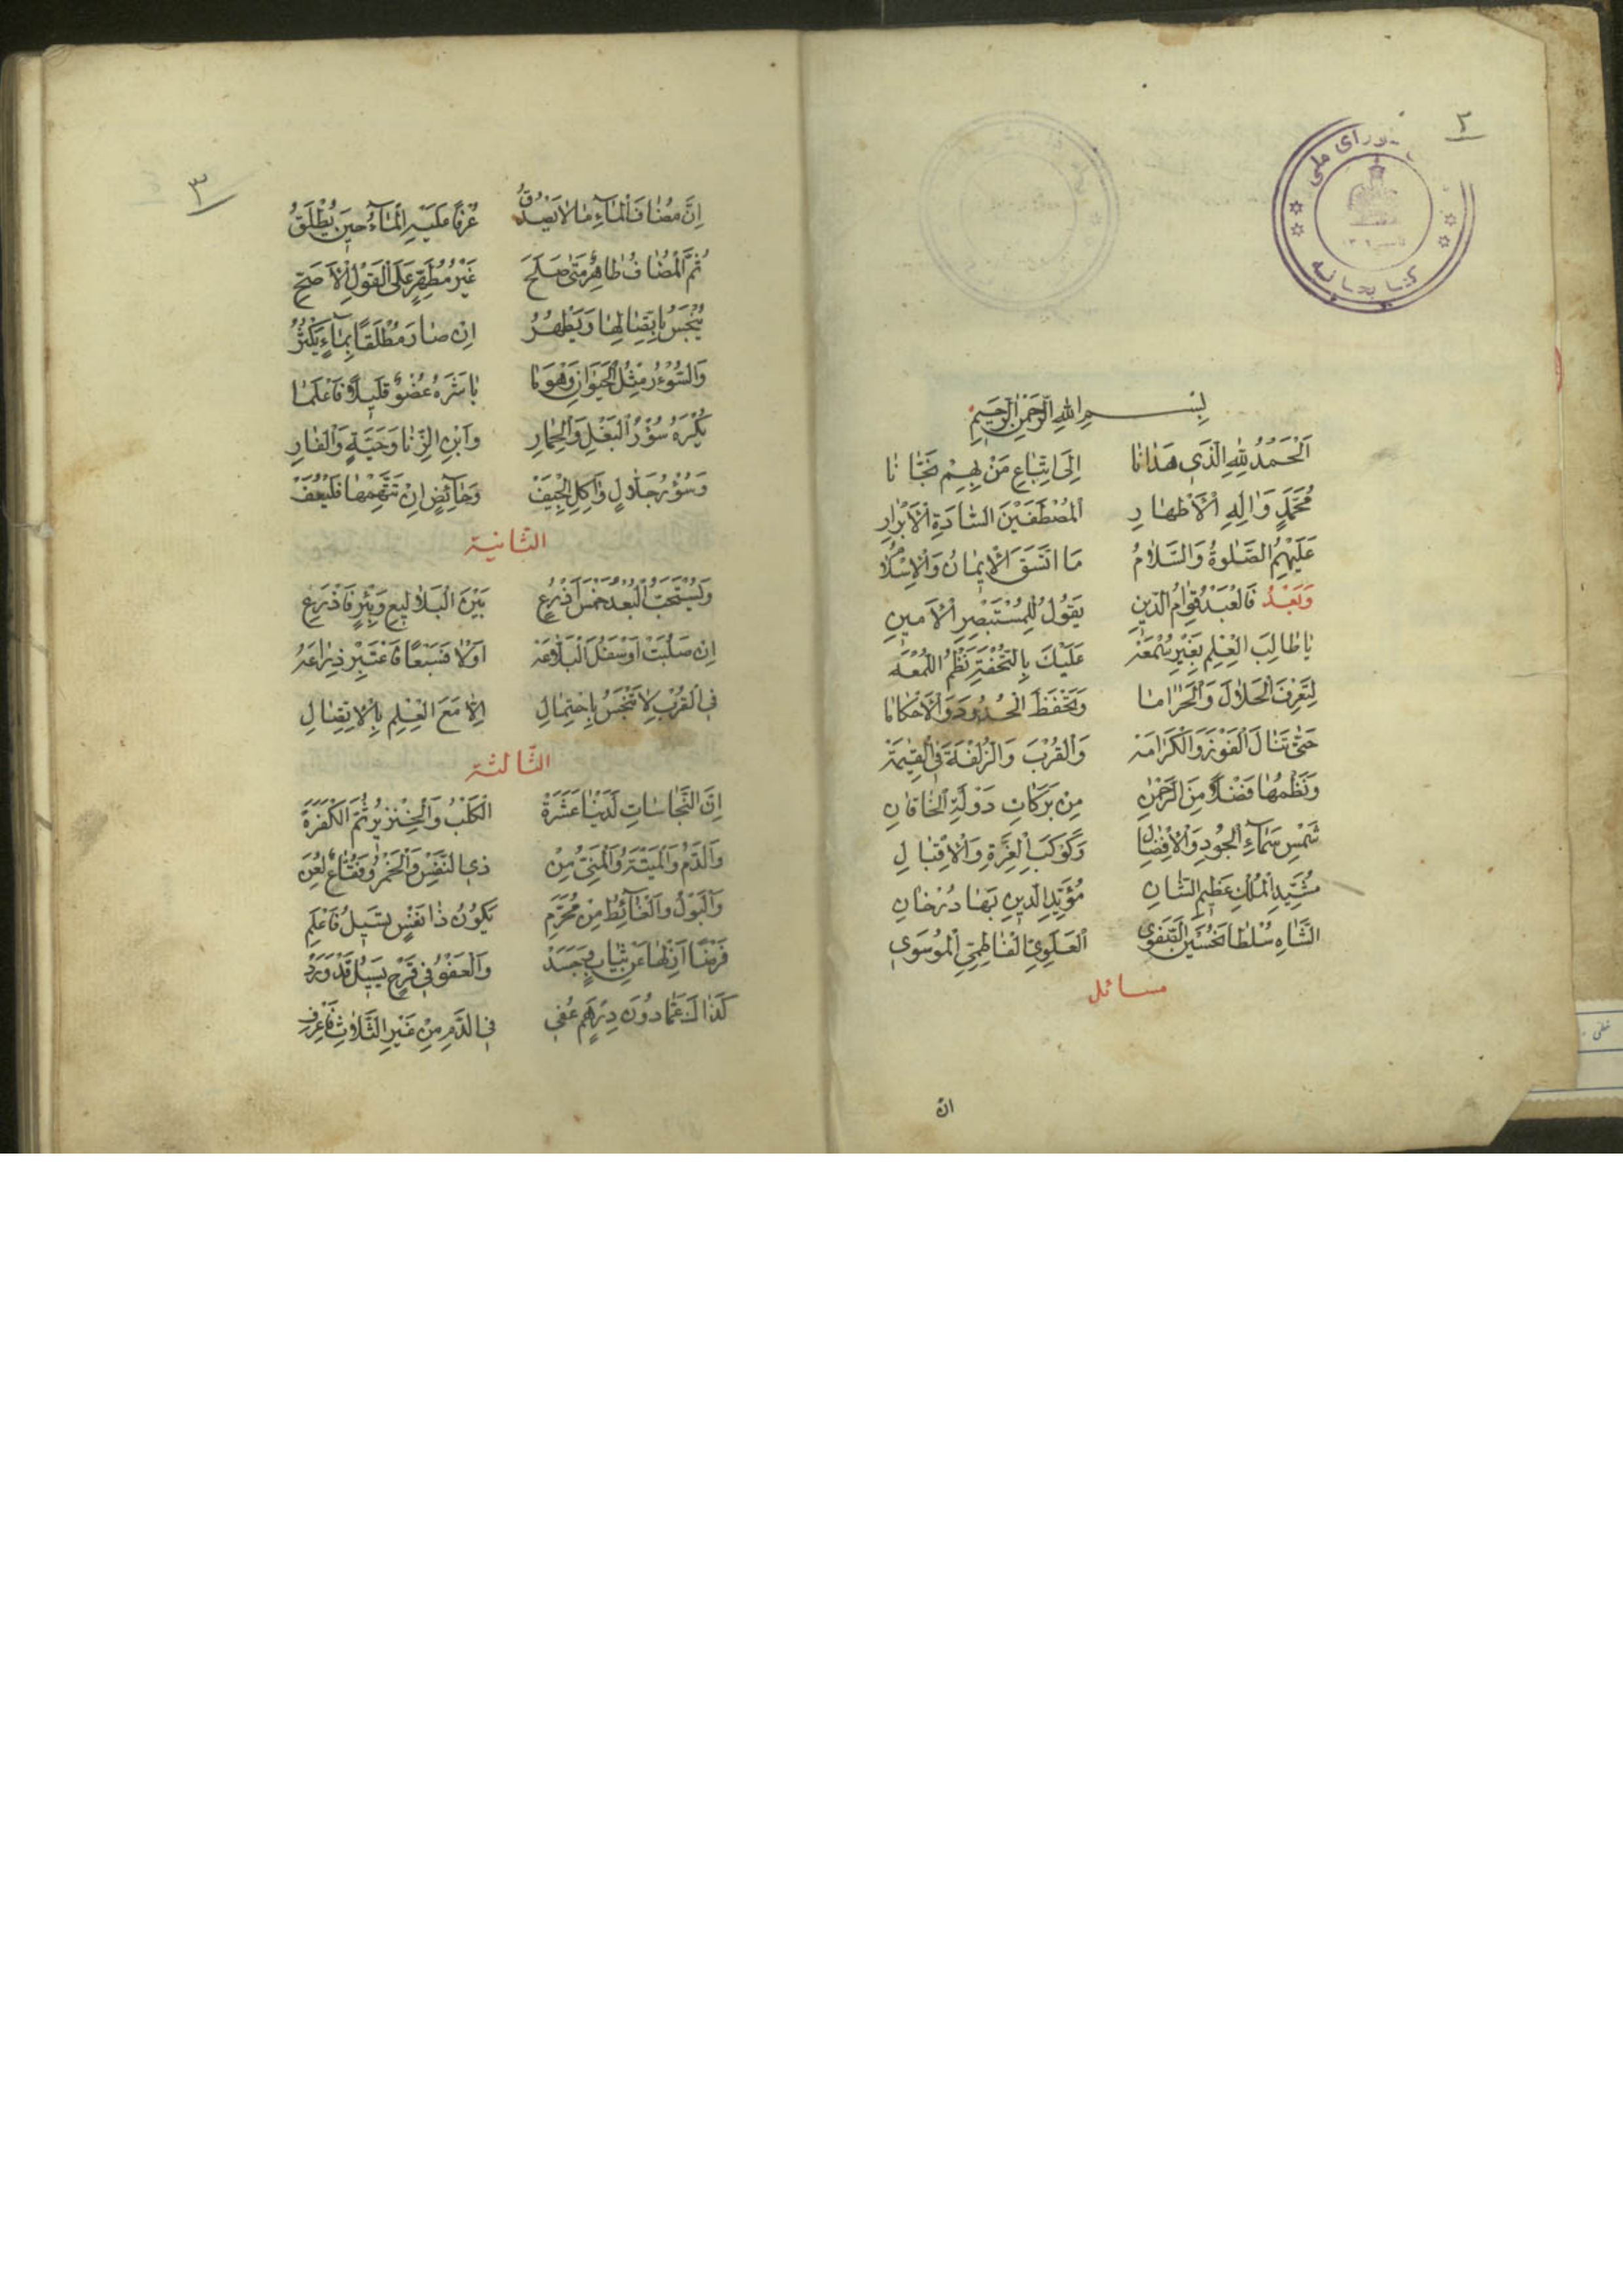 ٢
بِسْمِ اللهِ الرَّحْمٰنِ الرَّحِيمِ
اَلْحَمْدُ لِلّٰهِ الَّذِي هَدَانَا اِلَى اتِّبَاعِ مَنْ بِهِمْ نَجَّانَا
مُحَمَّدٍ وَاٰلِهِ الْاَطْهَارِ اَلْمُصْطَفَيْنَ السَّادَةِ الْاَبْرَارِ
عَلَيْهِمُ الصَّلٰوةُ وَالسَّلَامُ مَا اتَّسَقَ الْاِيمَانُ وَالْاِسْلَامُ
وَبَعْدُ فَالْعَبْدُ قِوَامُ الدِّينِ يَقُولُ لِلْمُسْتَبْصِرِ الْاَمِينِ
يَا طَالِبَ الْعِلْمِ بِغَيْرِ سُمْعَهْ عَلَيْكَ بِالتُّحْفَةِ نَظْمُ اللُّمْعَهْ
لِتَعْرِفَ الْحَلَالَ وَالْحَرَامَا وَتَحْفَظَ الْحُدُودَ وَالْاَحْكَامَا
حَتّٰى تَنَالَ الْفَوْزَ وَالْكَرَامَهْ وَالْقُرْبَ وَالزُّلْفَةَ فِي الْقِيٰمَهْ
وَنَظْمُهَا فَضْلًا مِنَ الرَّحْمٰنِ مِنْ بَرَكَاتِ دَوْلَةِ الْخَاقَانِ
شَمْسِ سَمَاءِ الْجُودِ وَالْاِفْضَالِ وَكَوْكَبِ الْعِزَّةِ وَالْاِقْبَالِ
مُشَيِّدِ الْمُلْكِ عَظِيمِ الشَّانِ مُؤَيِّدِ الدِّينِ بَهَادُرْخَانِ
الشَّاهِ سُلْطَانْحُسَيْنِ الصَّفَوِي اَلْعَلَوِيِّ الْفَاطِمِيِّ الْمُوسَوِي
مسائل
ان
٣
اِنَّ مُضَافَ الْمَاءِ مَا لَا يَصْدُقُ عُرْفًا عَلَيْهِ الْمَاءُ حِينَ يُطْلَقُ
ثُمَّ الْمُضَافُ طَاهِرٌ مَتٰى صَلَحَ غَيْرُ مُطَهِّرٍ عَلَى الْقَوْلِ الْاَصَحِّ
يُنْجَسُ بِاتِّصَالِهَا وَيَطْهُرُ اِنْ صَارَ مُطْلَقًا بِمَاءٍ يَكْثُرُ
وَالسُّؤْرُ مِثْلُ الْحَيَوَانِ وَهْوَ مَا بَاشَرَهُ عُضْوٌ قَلِيلًا فَاعْلَمَا
يُكْرَهُ سُؤْرُ الْبَغْلِ وَالْحِمَارِ وَابْنِ الزِّنَا وَحَيَّةٍ وَالْفَارِ
وَسُؤْرُ جَلَّالٍ وَاٰكِلِ الْجِيَفْ وَحَائِضٍ اِنْ تَتَّهِمْهَا فَلْيُعَفْ
الثانية
وَيُسْتَحَبُّ الْبُعْدُ خَمْسَ اَذْرُعٍ بَيْنَ الْبَلَالِيعِ وَبِئْرٍ فَاذْرَعِ
اِنْ صَلُبَتْ اَوْ سَفَلَ الْبَلَّوعَهْ اَوْ لَا فَسَبْعًا فَاعْتَبِرْ ذِرَاعَهْ
فِي الْقُرْبِ لَا تَنْجَسُ بِاحْتِمَالِ اِلَّا مَعَ الْعِلْمِ بِالْاِتِّصَالِ
الثالثة
اِنَّ النَّجَاسَاتِ لَدَيْنَا عَشَرَةْ اَلْكَلْبُ وَالْخِنْزِيرُ ثُمَّ الْكَفَرَةْ
وَالدَّمُ وَالْمَيْتَةُ وَالْمَنِيُّ مِنْ ذِي النَّفْسِ وَالْخَمْرُ وَفُقَّاعٌ لُعِنْ
وَالْبَوْلُ وَالْغَائِطُ مِنْ مُحَرَّمِ يَكُونُ ذَا نَفْسٍ تَسِيلُ فَاعْلَمِ
فَرْضًا اَزِلْهَا عَنْ ثِيَابٍ وَجَسَدْ وَالْعَفْوُ فِي قَرْحٍ يَسِيلُ قَدْ وَرَدْ
كَذَاكَ عَمَّا دُونَ دِرْهَمٍ عُفِي فِي الدَّمِ مِنْ غَيْرِ الثَّلَاثِ فَاعْرِفِ